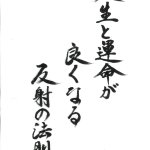 人生と運命が
良くなる
反射の法則